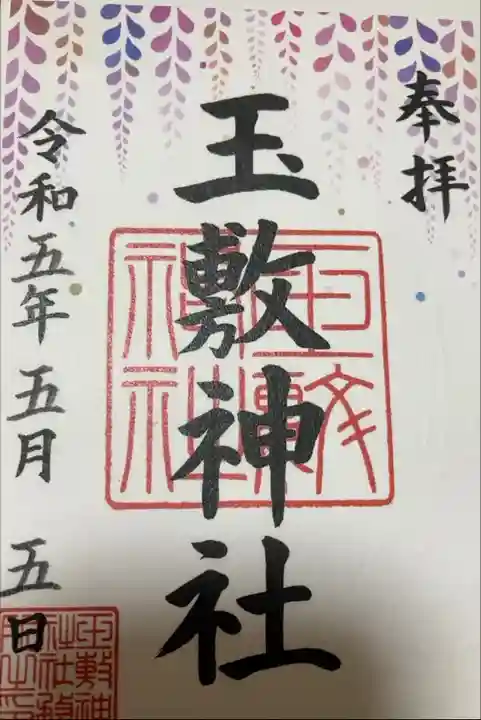 奉拝
玉敷神社
令和五年 五月 五日
玉敷神社